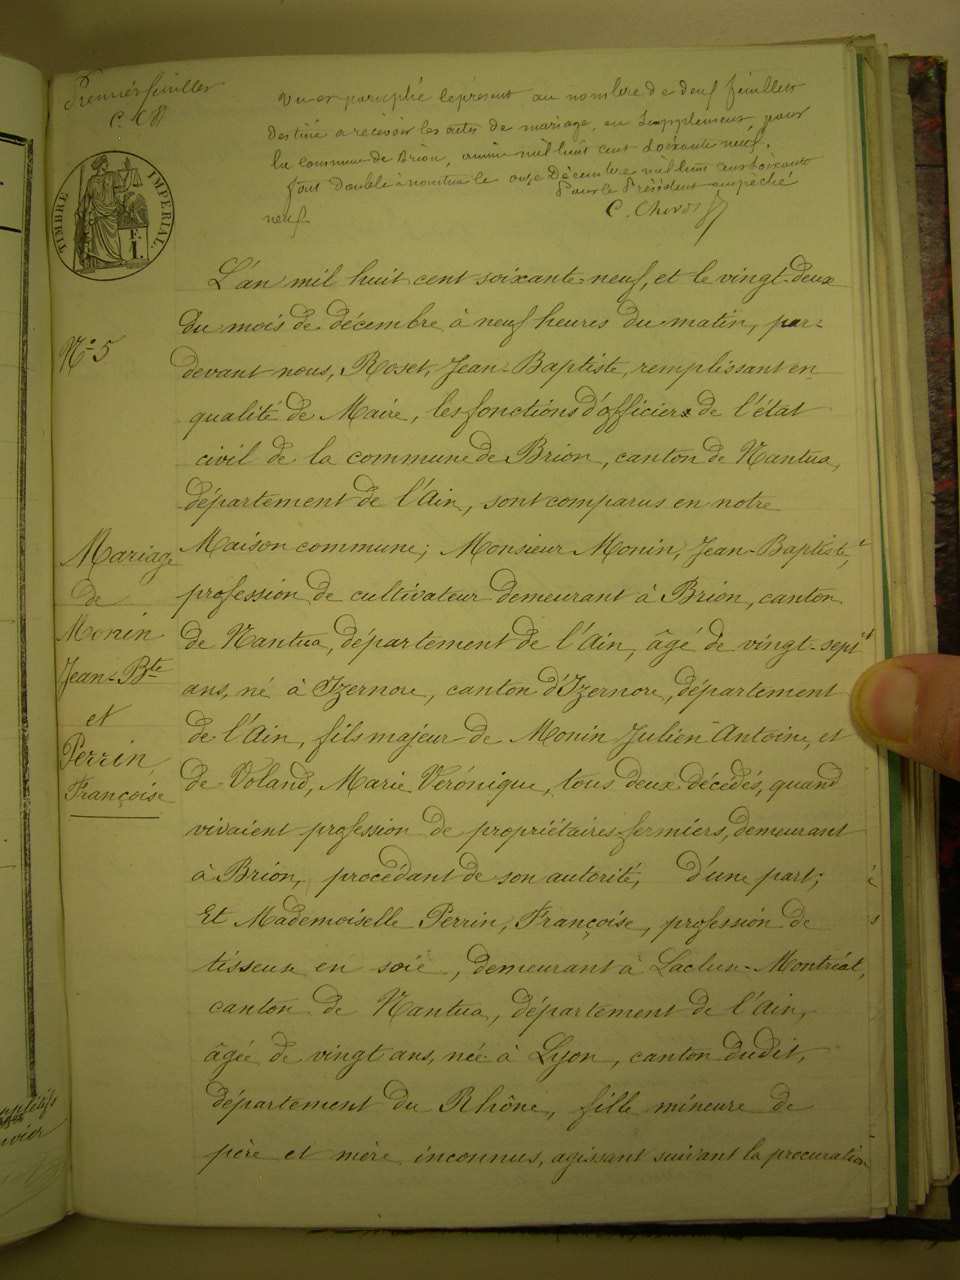 Premier feuillet
C. Ch
Vu et paraphé le présent au nombre de deux feuillets
destiné a recevoir les actes de mariage, en Supplément, pour
la commune de Brion, année mil huit cent soixante neuf.
fait double à nantua le onze Décembre mil huit cent soixante
neuf.
Pour le Président empêché
TIMBRE IMPERIAL.
L'an mil huit cent soixante-neuf, et le vingt-deux
du mois de décembre à neuf heures du matin, par-
N° 5
devant nous, Roset, Jean-Baptiste, remplissant en
qualité de Maire, les fonctions d'officier de l'état
civil de la commune de Brion, canton de Nantua,
département de l'Ain, sont comparus en notre
Maison commune; Monsieur Monin, Jean-Baptiste,
profession de cultivateur demeurant à Brion, canton
de Nantua, département de l'Ain, âgé de vingt-sept
ans, né à Izernore, canton d'Izernore, département
de l'Ain, fils majeur de Monin Julien Antoine, et
de Voland, Marie Véronique, tous deux décédés, quand
vivaient profession de propriétaires-fermiers, demeurant
à Brion, procédant de son autorité, d'une part;
Et Mademoiselle Perrin, Françoise, profession de
tisseuse en soie, demeurant à Lacluse-Montréal,
canton de Nantua, département de l'Ain,
âgée de vingt ans, née à Lyon, canton dudit,
département du Rhône, fille mineure de
père et mère inconnus, agissant suivant la procuration
Mariage
de
Monin
Jean-Bte
et
Perrin
Françoise